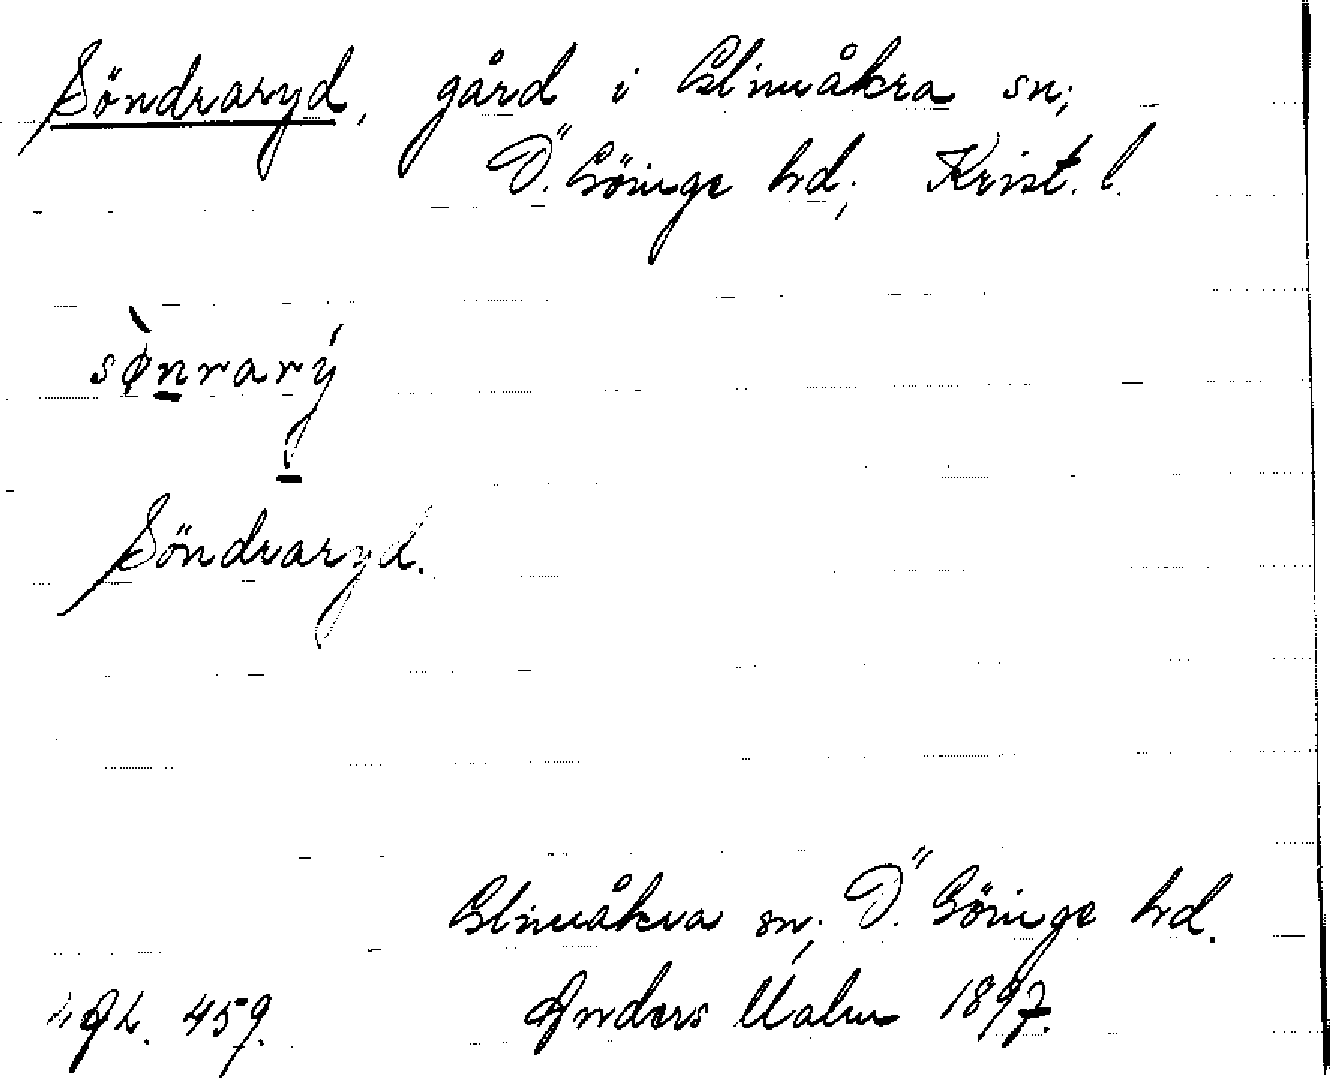 Söndraryd, gård i Glimåkra sn;
Ö. Göinge hd; Krist. l.
sø̀nrarý
Söndraryd.
Glimåkra sn; Ö. Göinge hd.
459. Anders Malm 1897.